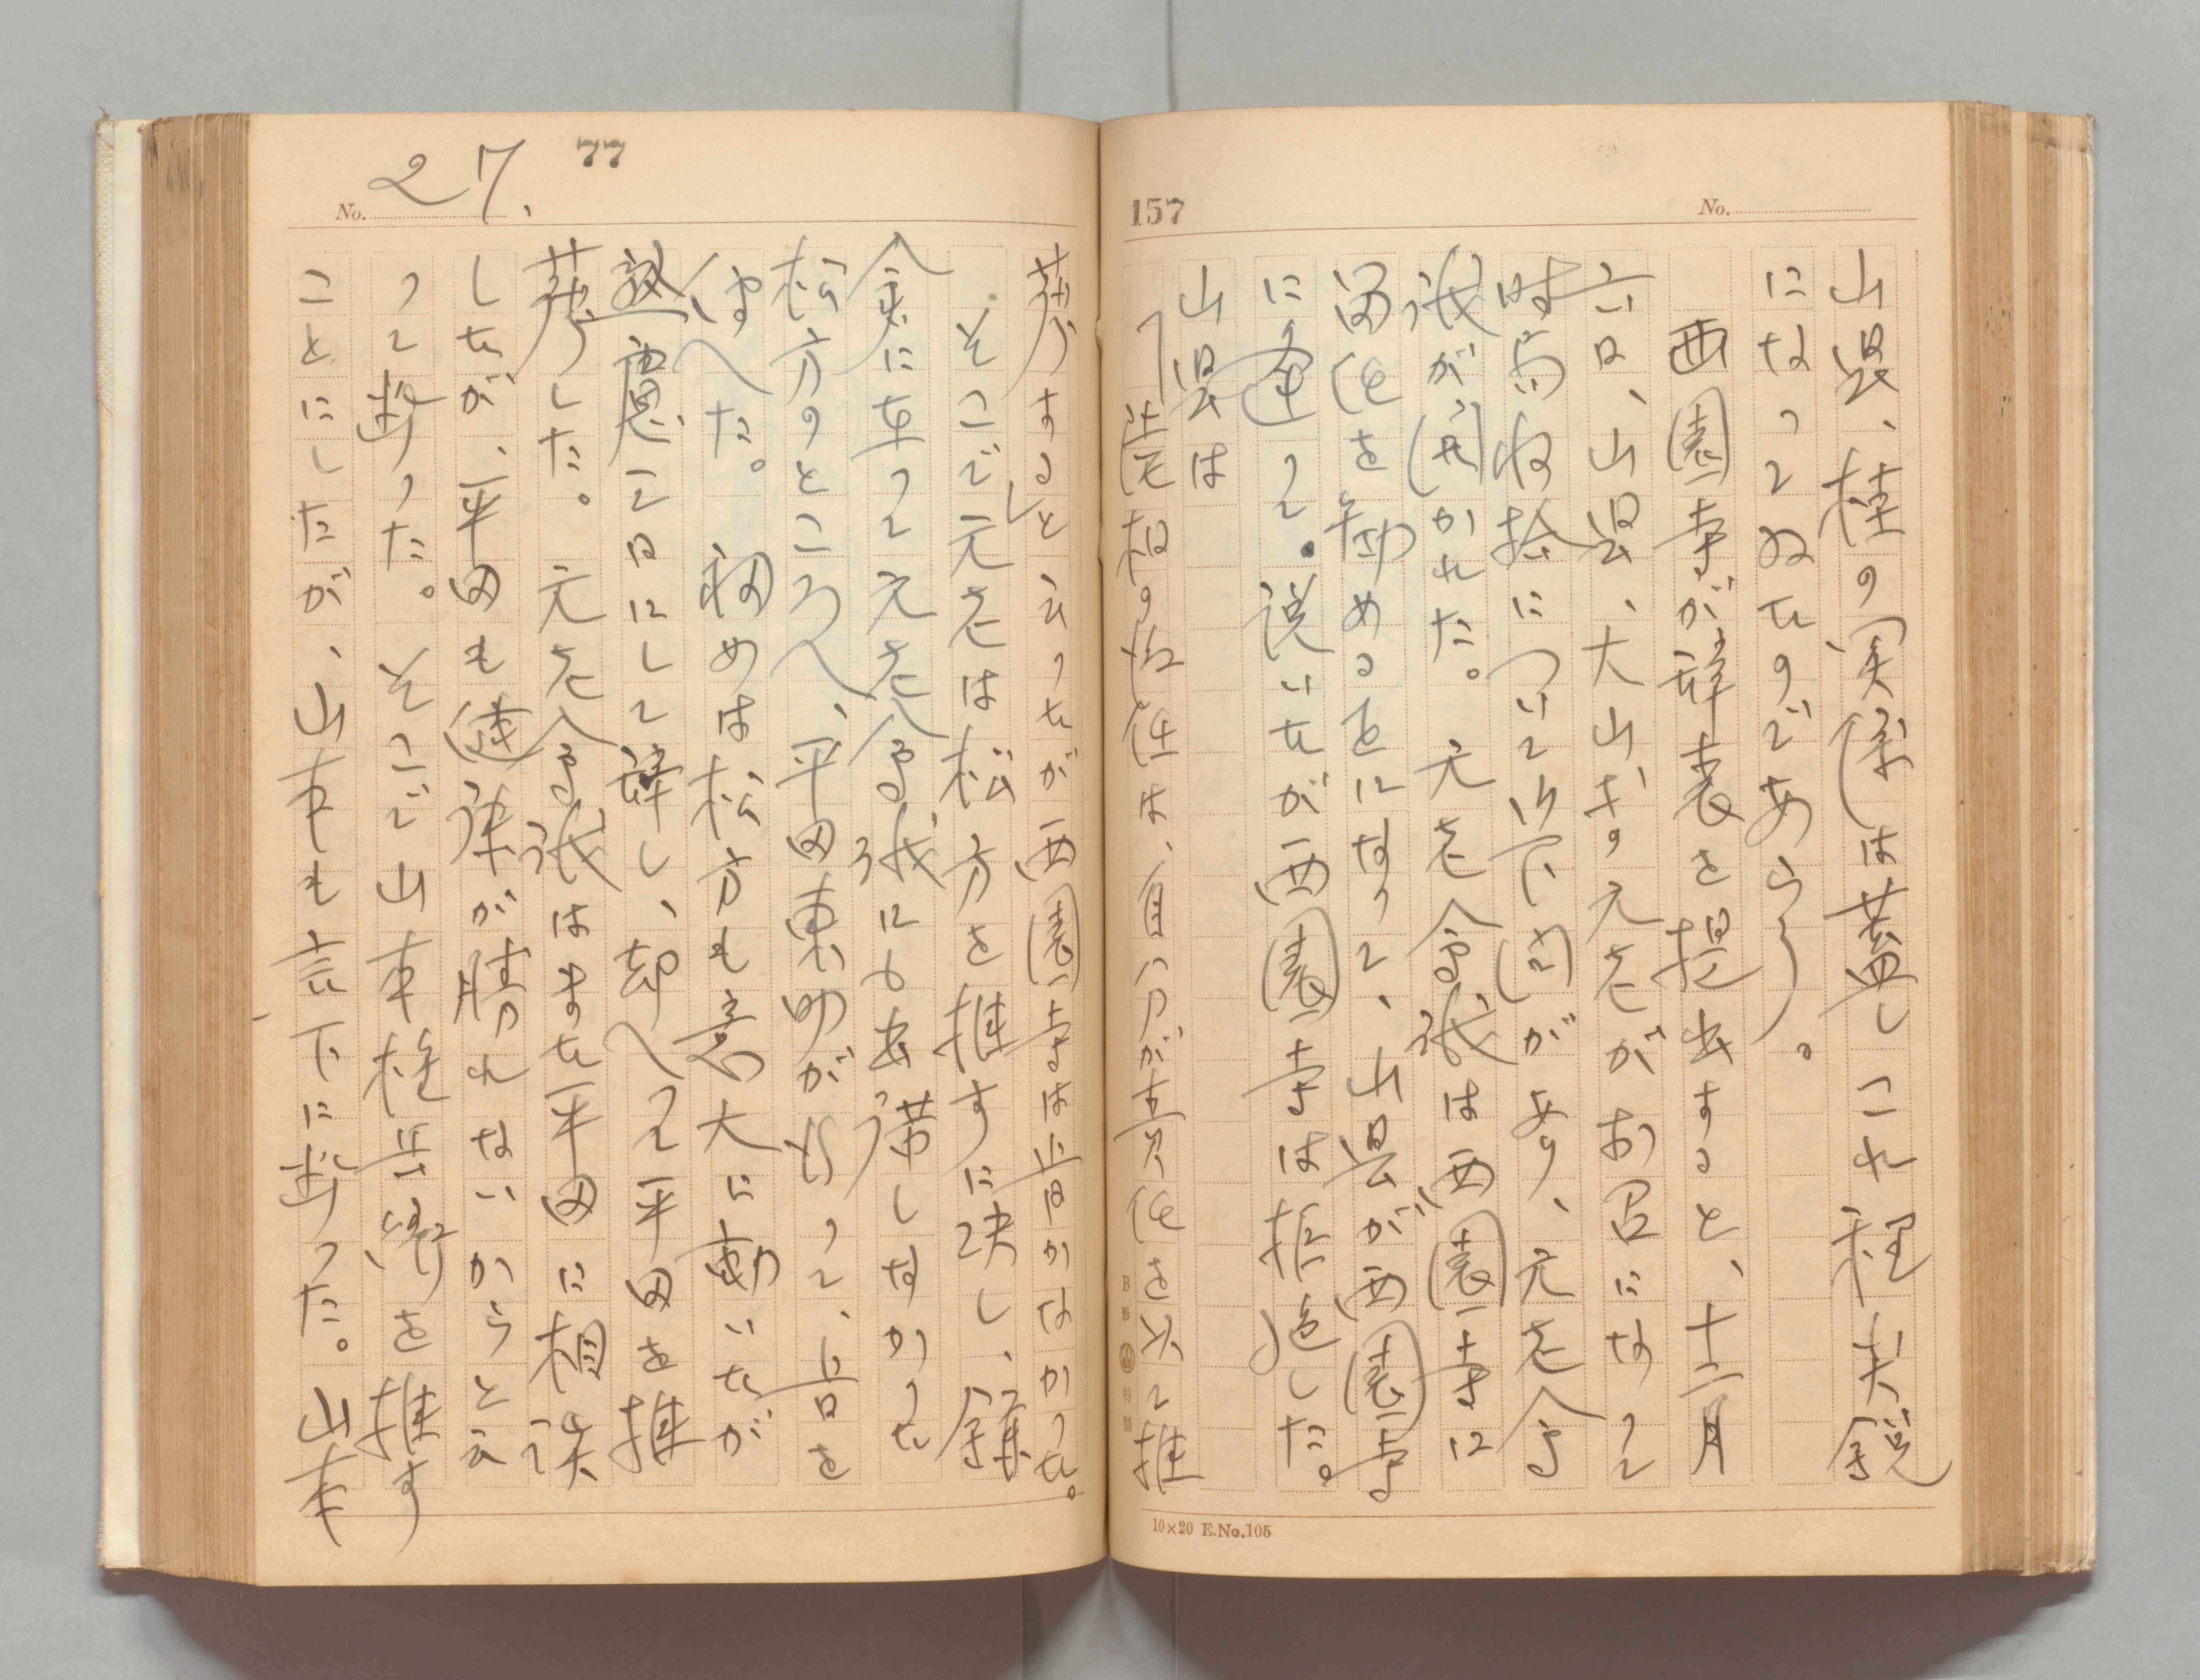 No.
157
山県、桂の関係は蓋しこれ程尖鋭
になつてゐたのであらう。
西園寺が辞表を提出すると、十二月
六日、山県、大山等の元老がお召になつて
時局収拾について御下問があり、元老会
議が開かれた。元老会議は西園寺に
留任を勧めることになつて、山県が西園寺
に逢つて説いたが西園寺は拒絶した。
山県は
「善后相の後任は、自分が責任を以て推
10×20 E.No.105
77
No. 27.
薦する」と云つたが西園寺は肯かなかつた。
そこで元老は松方を推すに決し、鎌
倉に在つて元老会議にも出席しなかつた
松方のところへ、平田東助が行つて、旨を
伝へた。初めは松方も意大に動いたが
熟慮二日にして辞し、却へつて平田を推
薦した。元老会議はまた平田に相談
したが、平田も健康が勝れないからと云
つて断つた。そこで山本権兵衛を推す
ことにしたが、山本も言下に断つた。山本